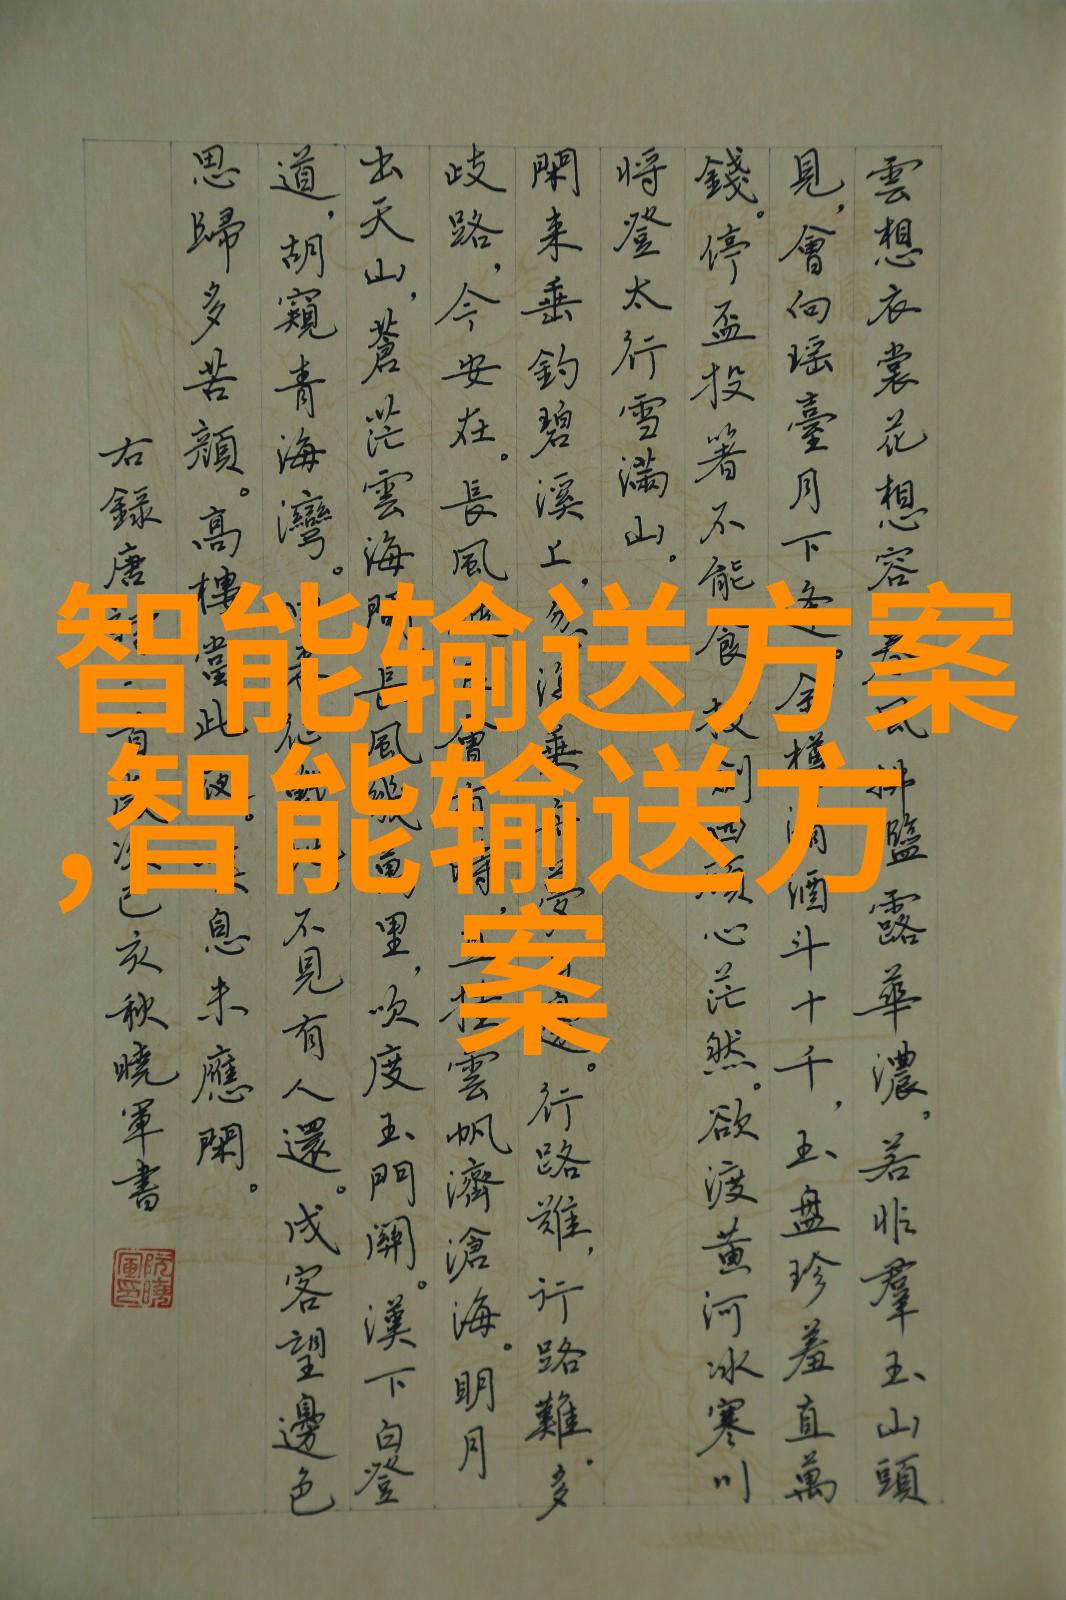 雲想衣裳花想容春風拂檻露華濃。若非羣玉山頭
見,會向瑤臺月下逢。金樽清酒斗十千,玉盤珍羞直萬
錢。停盃投箸不能食拔劍四顧心茫然。欲渡黄河冰寒川
将登太行雪滿山。
閑来垂釣碧溪上,忽復乘舟夢邊。行路難,行路難。多
歧路,今安在。長風會有時,直挂雲帆濟滄海。明月
出天山,蒼茫雲海間長風幾萬里,吹度玉門關。漢下白登
道,胡窺青海灣。征戰不見有人還。戍客望邊色
思歸多苦顏。高樓當此夜。息未應閑。
右錄唐詩首歲次己亥秋曉軍書
阮曉軍印
智能输送方案
,智能输送方
案